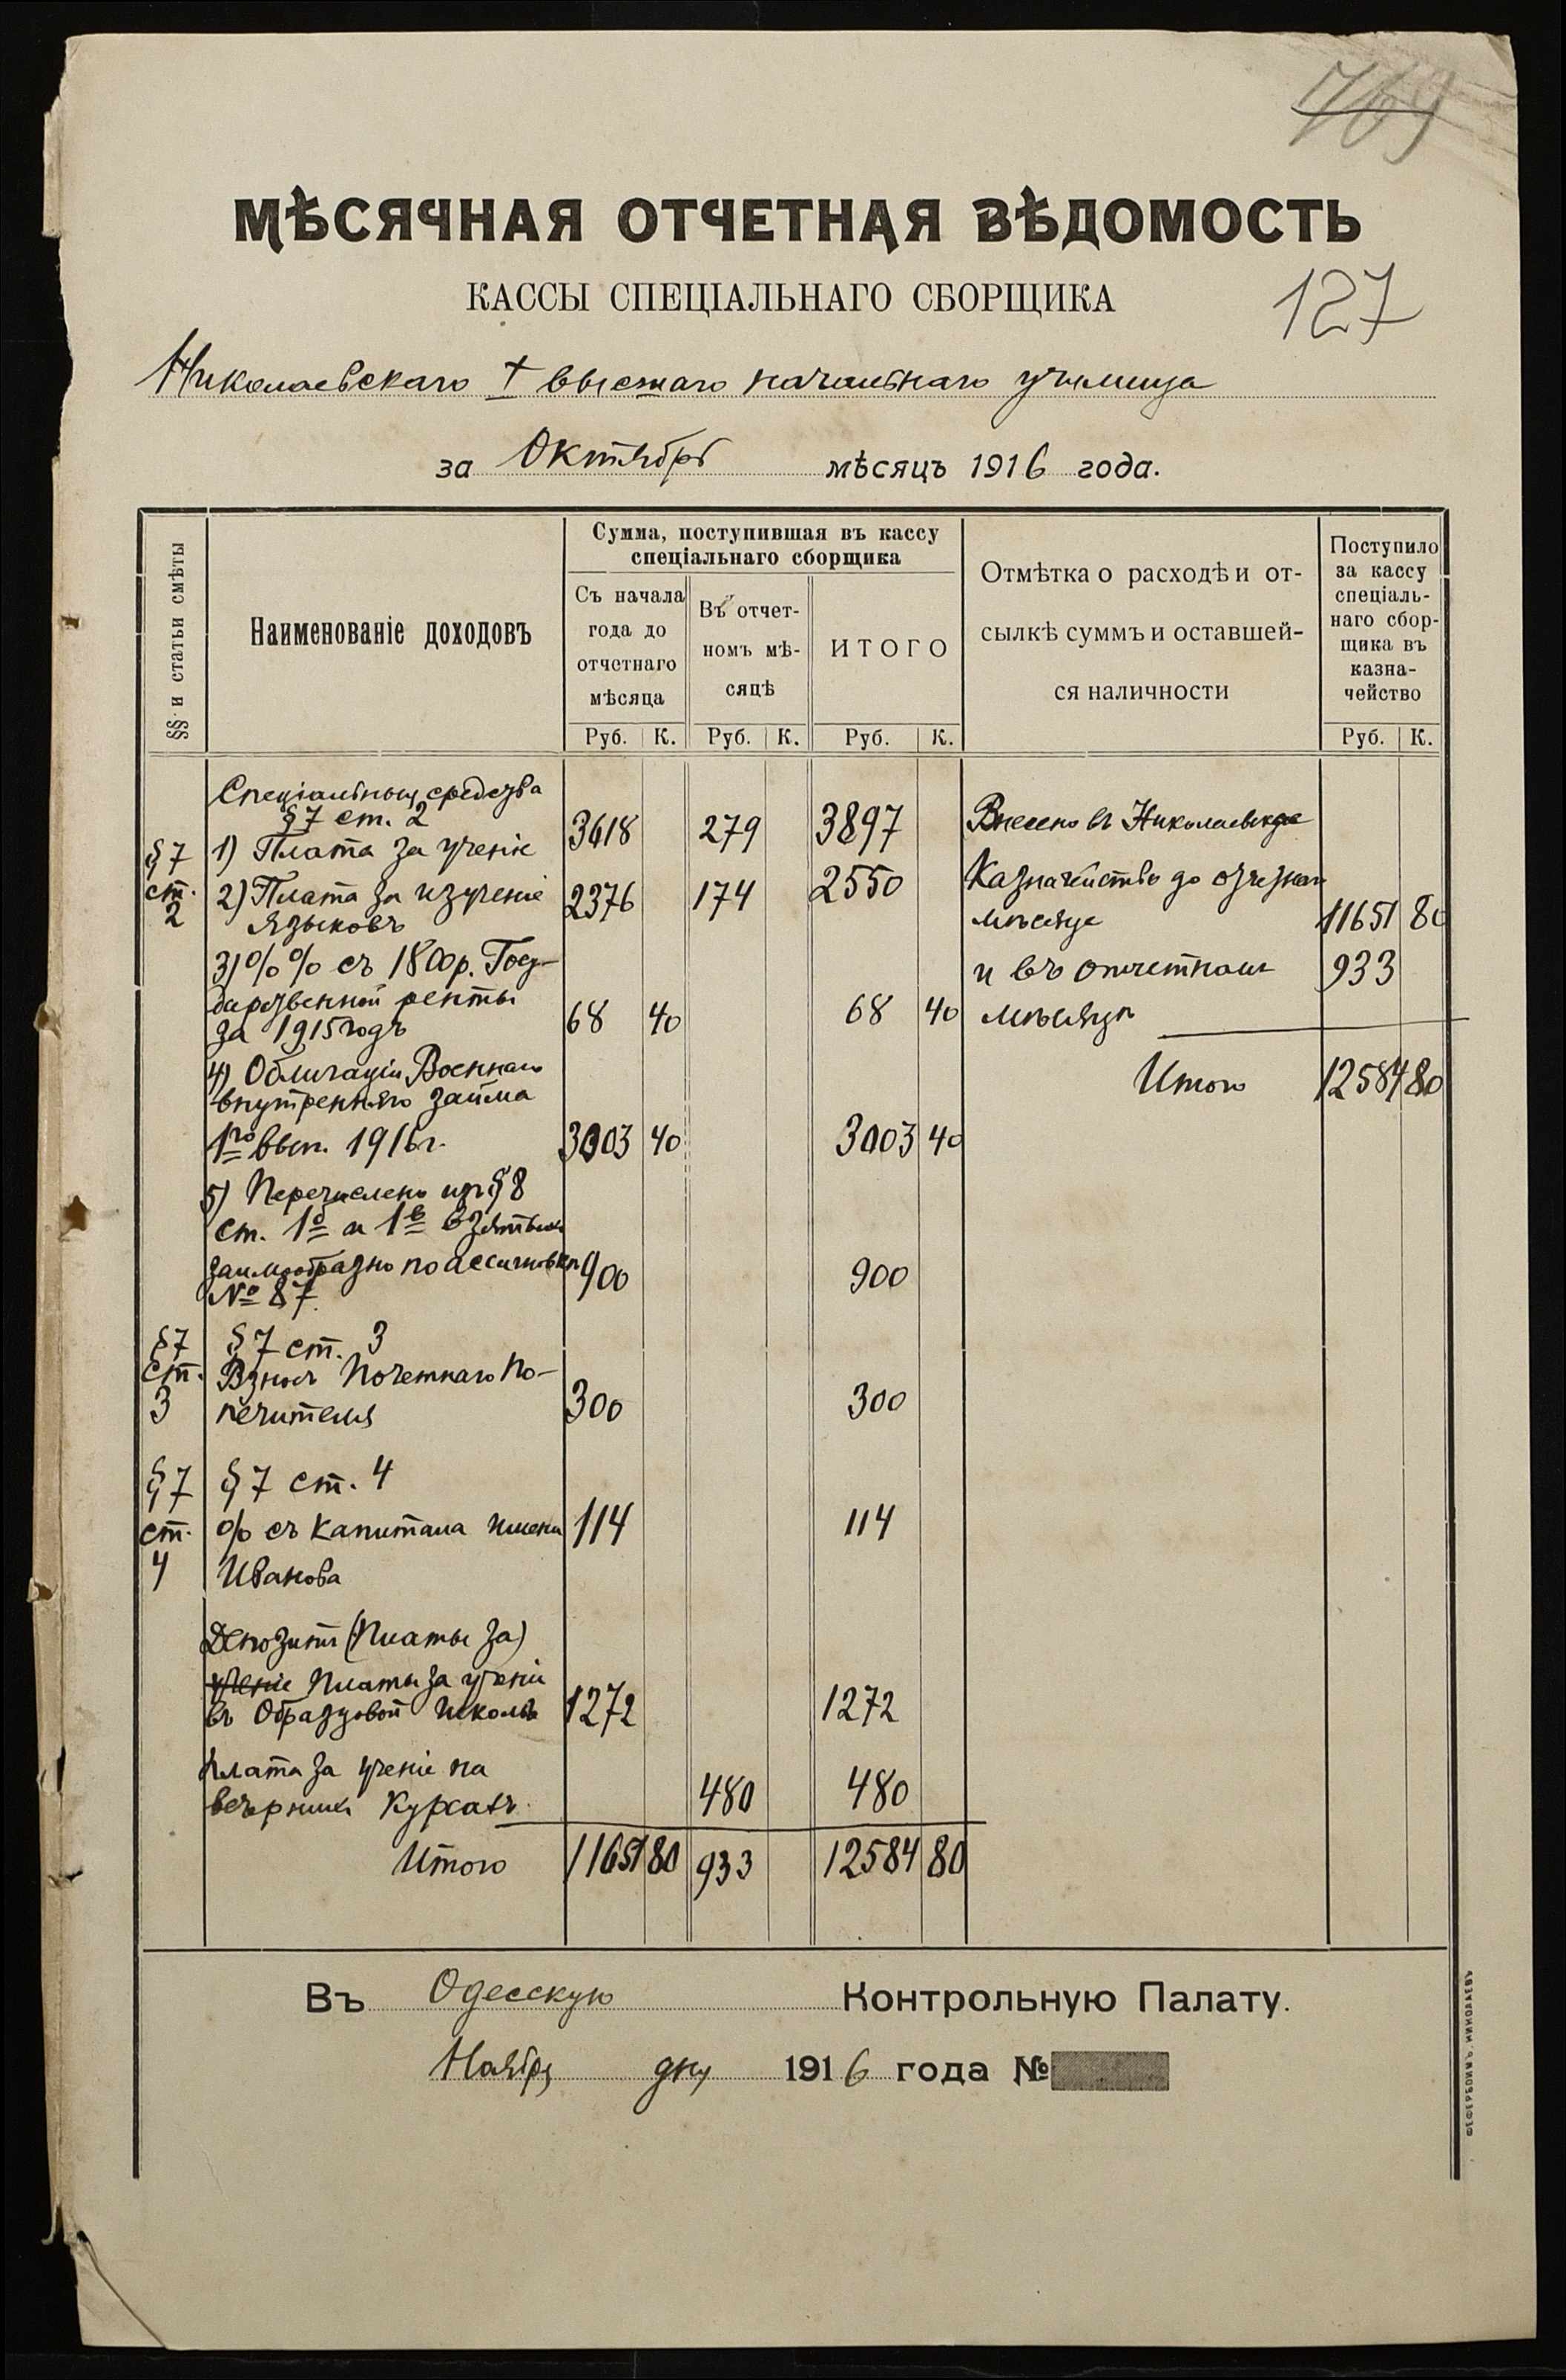 769
МѢСЯЧНАЯ ОТЧЕТНАЯ ВѢДОМОСТЬ
КАССЫ СПЕЦІАЛЬНАГО СБОРЩИКА
127
Николаевскаго I высшаго начальнаго училища
за Октябрь мѣсяцъ 1916 года.
§§ и статьи смѣты
Наименованіе доходовъ
Сумма, поступившая въ кассу
спеціальнаго сборщика
Съ начала
года до
отчетнаго
мѣсяца
Въ отчет-
номъ мѣ-
сяцѣ
ИТОГО
Отмѣтка о расходѣ и от-
сылкѣ суммъ и оставшей-
ся наличности
Поступило
за кассу
спеціаль-
наго сбор-
щика въ
казна-
чейство
Руб. К. Руб. К. Руб. К. Руб. К.
Спеціальныя средства
§ 7 ст. 2
§ 7 1) Плата за ученіе 3618 279 3897 Внесено въ Николаевское
ст. 2) Плата за изученіе 2376 174 2550 Казначейство до отчетнаго
2 языковъ мѣсяца 11651 80
3) %% съ 1800 р. Госу- и въ отчетномъ 933
дарственной ренты
за 1915 годъ 68 40 68 40 мѣсяцѣ
4) Облигаціи Военнаго
внутренняго займа Итого 12584 80
1го вып. 1916 г. 3003 40 3003 40
5) Перечислено изъ § 8
ст. 1б и 1в взятыхъ
заимообразно по ассигновкѣ 900 900
№ 87.
§ 7 § 7 ст. 3
ст. Взносъ Почетнаго По-
3 печителя 300 300
§ 7 § 7 ст. 4
ст. % съ капитала имени 114 114
4 Иванова
Депозиты (Платы за)
ученіе Платы за ученіе
въ Образцовой школѣ 1272 1272
Плата за ученіе на
вечернихъ курсахъ 480 480
Итого 11651 80 933 12584 80
Въ Одесскую Контрольную Палату.
Ноября дня 1916 года №
ФЕФЕРБОИМЪ, НИКОЛАЕВЪ